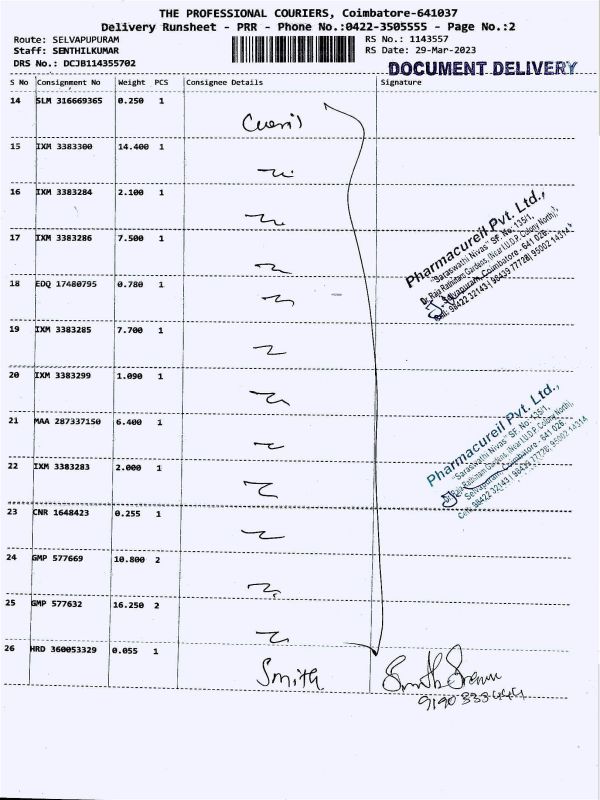 THE PROFESSIONAL COURIERS, Coimbatore-641037
Delivery Runsheet - PRR - Phone No.:0422-3505555 - Page No.:2
Route: SELVAPUPURAM RS No.: 1143557
Staff: SENTHILKUMAR RS Date: 29-Mar-2023
DRS No.: DCJB114355702
DOCUMENT DELIVERY
S No Consignment No Weight PCS Consignee Details Signature
14 SLM 316669365 0.250 1
15 IXM 3383300 14.400 1
16 IXM 3383284 2.100 1
17 IXM 3383286 7.500 1
18 EDQ 17480795 0.780 1
19 IXM 3383285 7.700 1
20 IXM 3383299 1.090 1
21 MAA 287337150 6.400 1
22 IXM 3383283 2.000 1
23 CNR 1648423 0.255 1
24 GMP 577669 10.800 2
25 GMP 577632 16.250 2
26 HRD 360053329 0.055 1
Smith
Pharmacureil Pvt. Ltd.,
"Saraswathi Nivas" SF. No: 135/1,
Dr. Raja Rathinam Gardens, (Near I.U.D.P. Colony North),
Selvapuram, Coimbatore - 641 026.
Cell: 98422 32143 | 98439 77728| 95002 14314
Pharmacureil Pvt. Ltd.,
"Saraswathi Nivas" SF. No: 135/1,
Dr. Raja Rathinam Gardens, (Near I.U.D.P. Colony North),
Selvapuram, Coimbatore - 641 026.
Cell: 98422 32143 | 98439 77728| 95002 14314